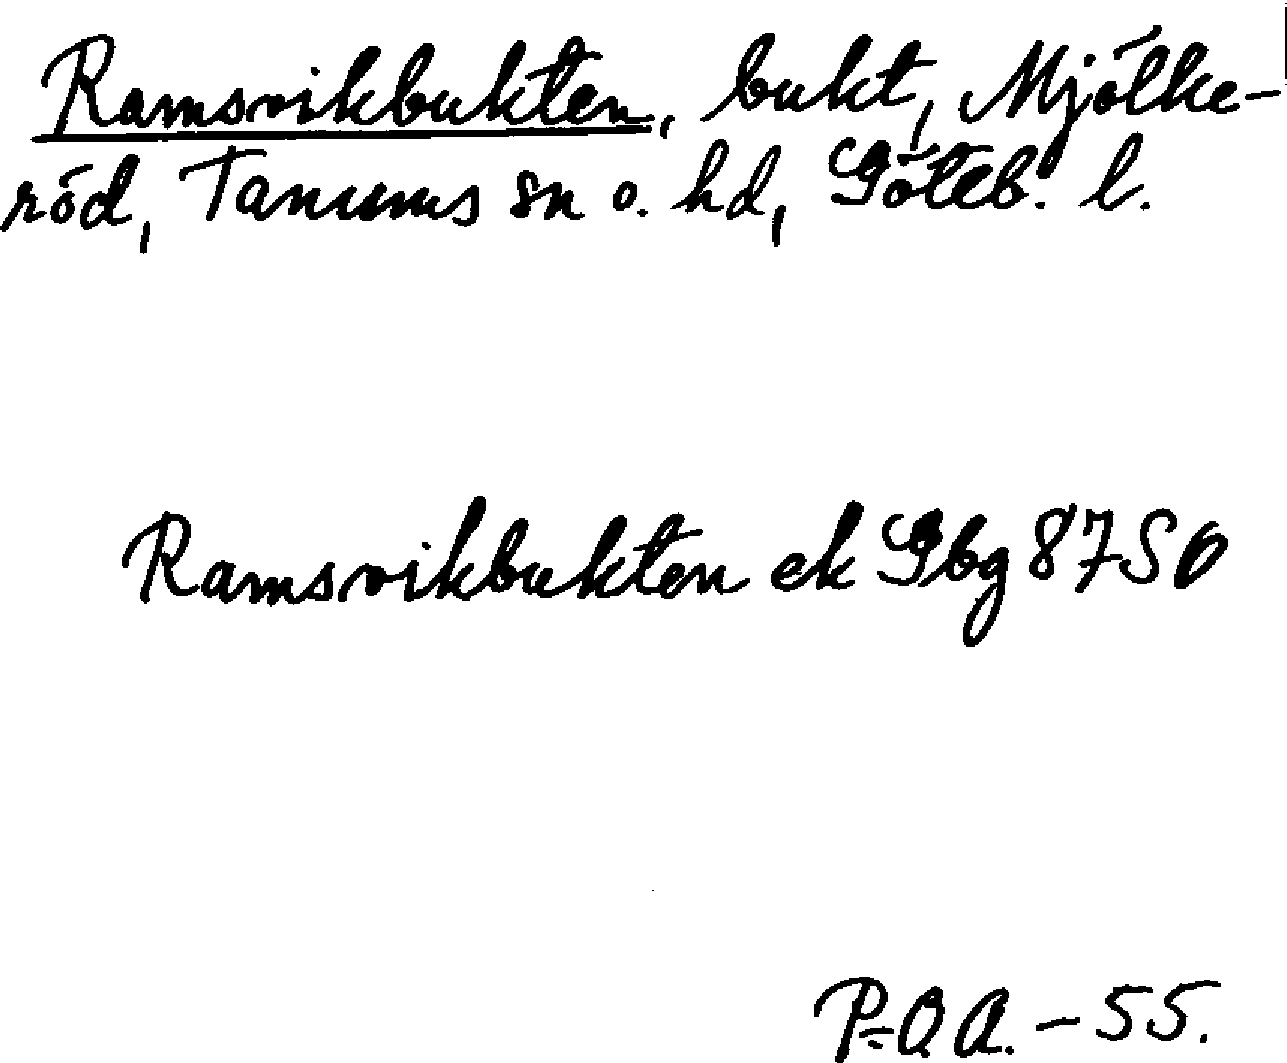 Ramsvikbukten, bukt, Mjölke-
röd, Tanums sn o. hd, Göteb. l.
Ramsvikbukten ek Gbg 87 SO
P-O A. - 55.